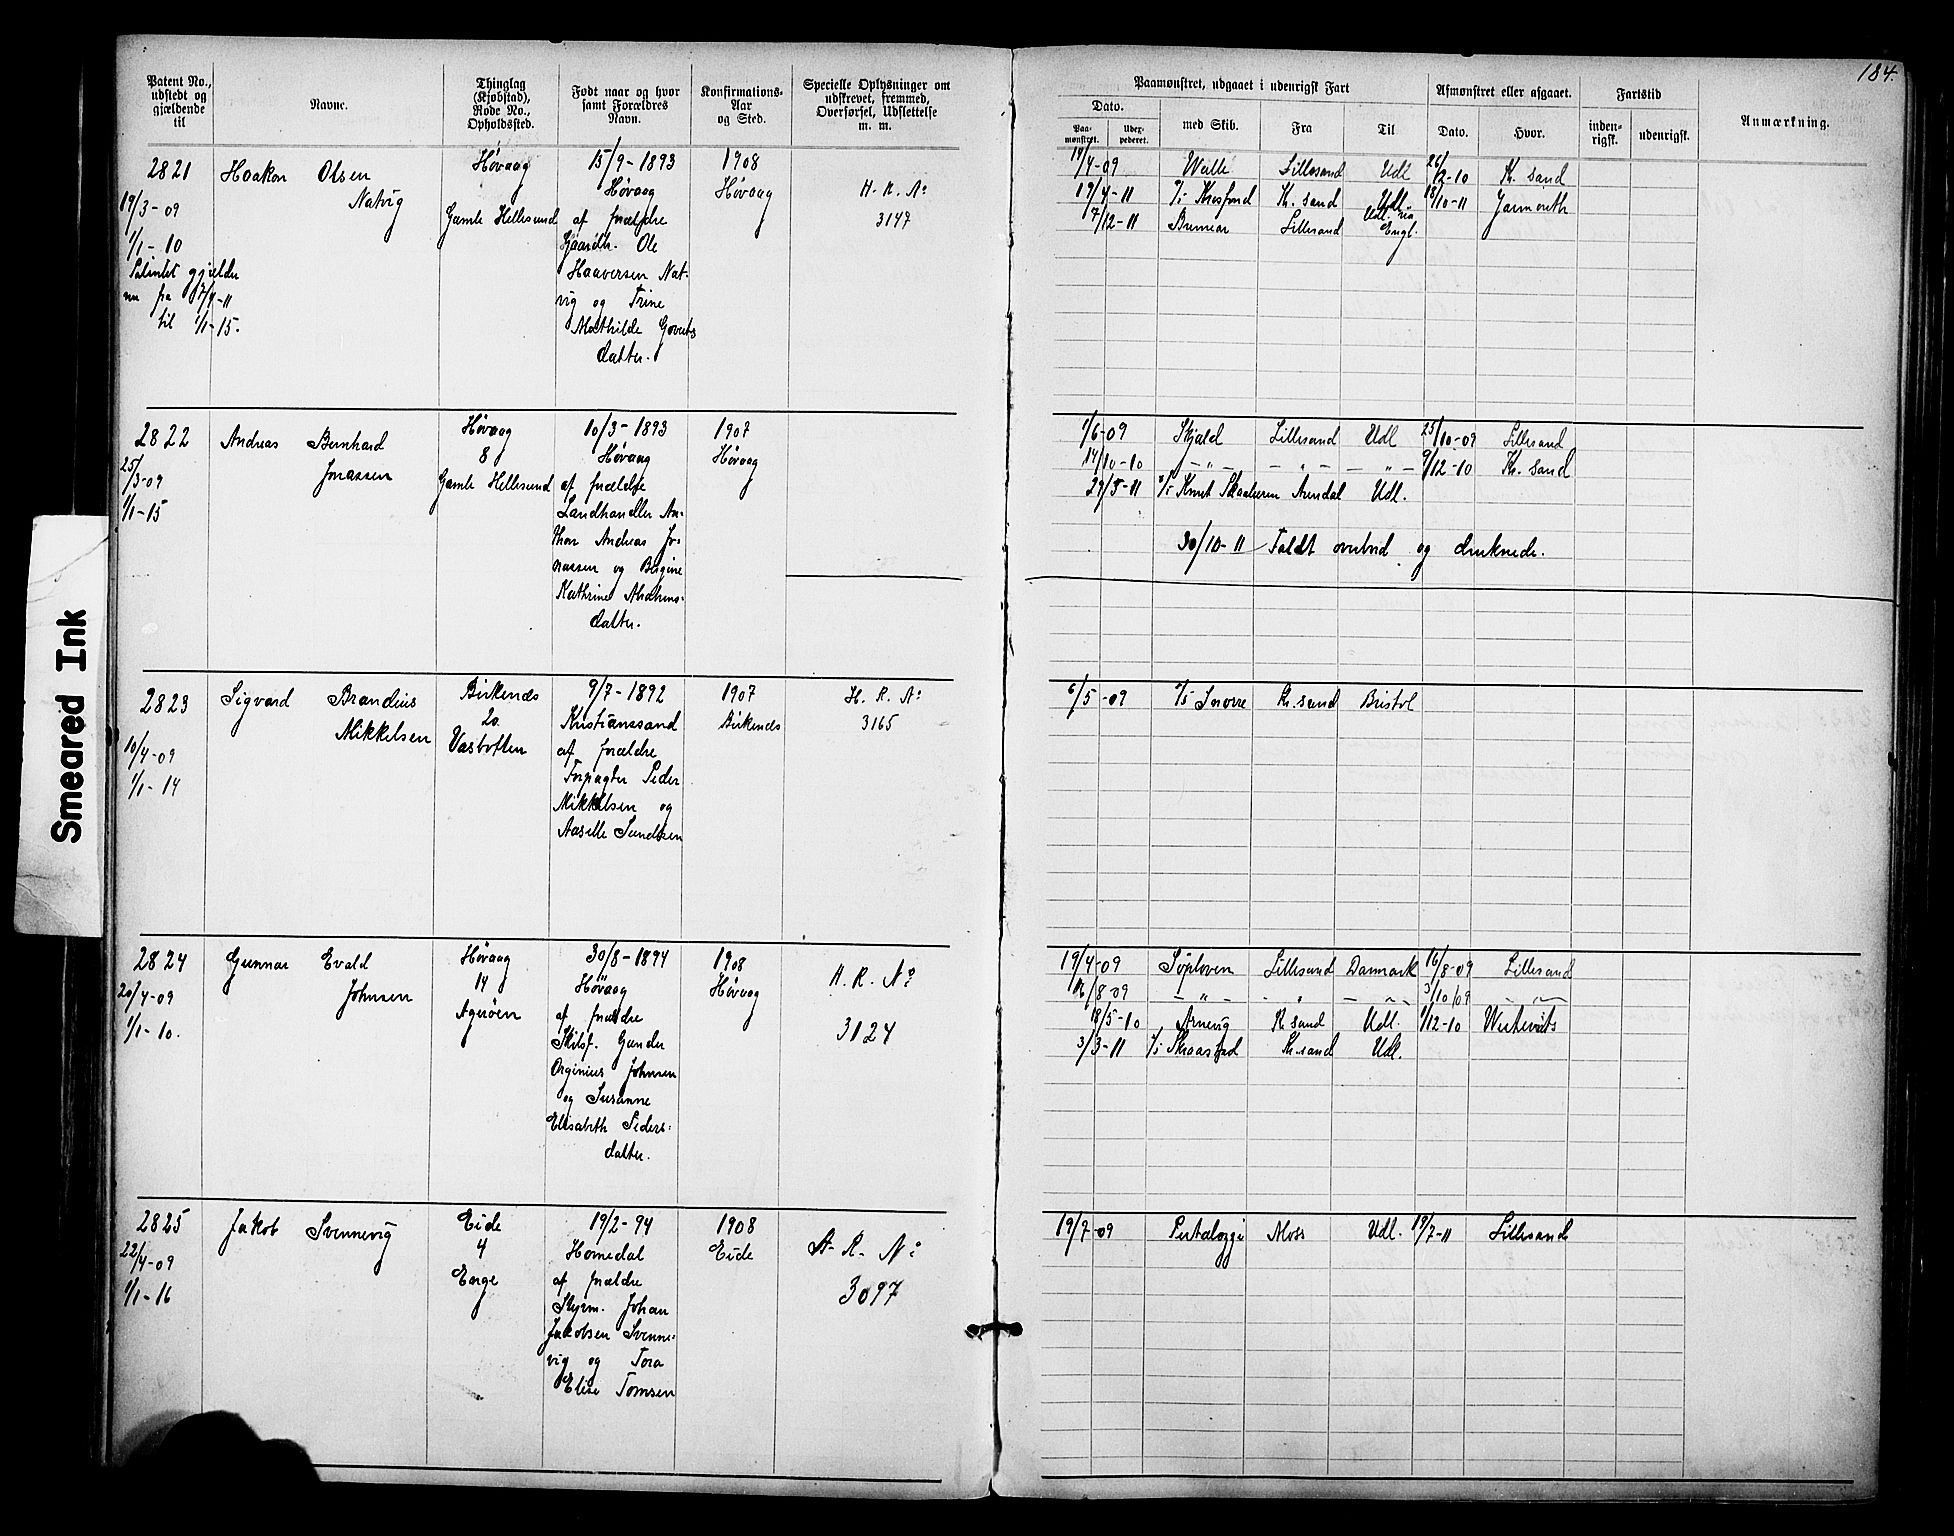 184
Patent No., udstedt og gjældende til
Navne.
Thinglag (Kjøbstad), Rode No., Opholdssted.
Født naar og hvor samt Forældres Navn.
Konfirmations-Aar og Sted.
Specielle Oplysninger om udskrevet, fremmed, Overførsel, Udslettelse m. m.
Paamønstret, udgaaet i udenrigsk Fart
Dato.
Paa-mønstret.
Udex-pederet.
med Skib.
Fra
Til
Afmønstret eller afgaaet.
Dato.
Hvor.
Fartstid
inden-rigsk.
udenrigsk.
Anmærkning.
2821
19/3-09
1/1-10
Patentet gjælder
nu fra 7/4-11
til 1/1-15.
Haakon Olsen
Natvig
Høvaag
Gamle Hellesund
15/9-1893
Høvaag
af forældre
Gaardb. Ole
Haaversen Nat-
vig og Trine
Mathilde Goverts
datter.
1908
Høvaag
H. R. No
3147
14/4-09 Lillesand Udl 26/2-10 Kr. sand
19/4-11 Kr. sand Udl. 18/10-11 Jarmouth
7/12-11 Lillesand Udl. via
Engl.
2822
25/3-09
1/1-15
Andreas Bernhard
Jonassen
Høvaag
8
Gamle Hellesund
10/3-1893
Høvaag
af forældre
Landhandler An-
thon Andreas Jo-
nassen og Bergine
Kathrine
datter.
1907
Høvaag
1/6-09 Skjold Lillesand Udl 25/10-09 Lillesand
14/10-10 — „ — — „ — — „ — 9/12-10 Kr. sand
29/5-11 Arendal Udl.
30/10-11 Faldt overbord og druknede.
Smeared Ink
2823
10/4-09
1/1-14
Sigvard Brandius
Mikkelsen
Birkenes
20
Vastveften
9/7-1892
Kristianssand
af forældre
Forpagter Peder
Mikkelsen og
Aasille
1907
Birkenes
H. R. No
3165
6/5-09 S/S Snorre Kr. sand Bristol
2824
20/4-09
1/1-10.
Gunnar Evald
Johnsen
Høvaag
14
Agerøen
30/8-1894
Høvaag
af forældre
Skibsf. Gunder
Orginius Johnsen
og Susanne
Elisabeth Peders-
datter.
1908
Høvaag
H. R. No
3124
19/4-09 Søploven Lillesand Danmark 16/8-09 Lillesand
16/8-09 — „ — - „ — „ — 3/10/09 — „ —
18/5-10 Arnevig Kr. sand Udl. 1/12-10
3/3-11 Kr. sand Udl.
2825
22/4-09
1/1-16
Jakob Svennevig
Eide
4
Enge
19/2-94
Homedal
af forældre
Styrm. Johan
Jakobsen Svenne-
vig og Tora
Elise Tomsen
1908
Eide
A. R. No
3097
19/7-09 Pestalozzi Moss Udl. 19/7-11 Lillesand